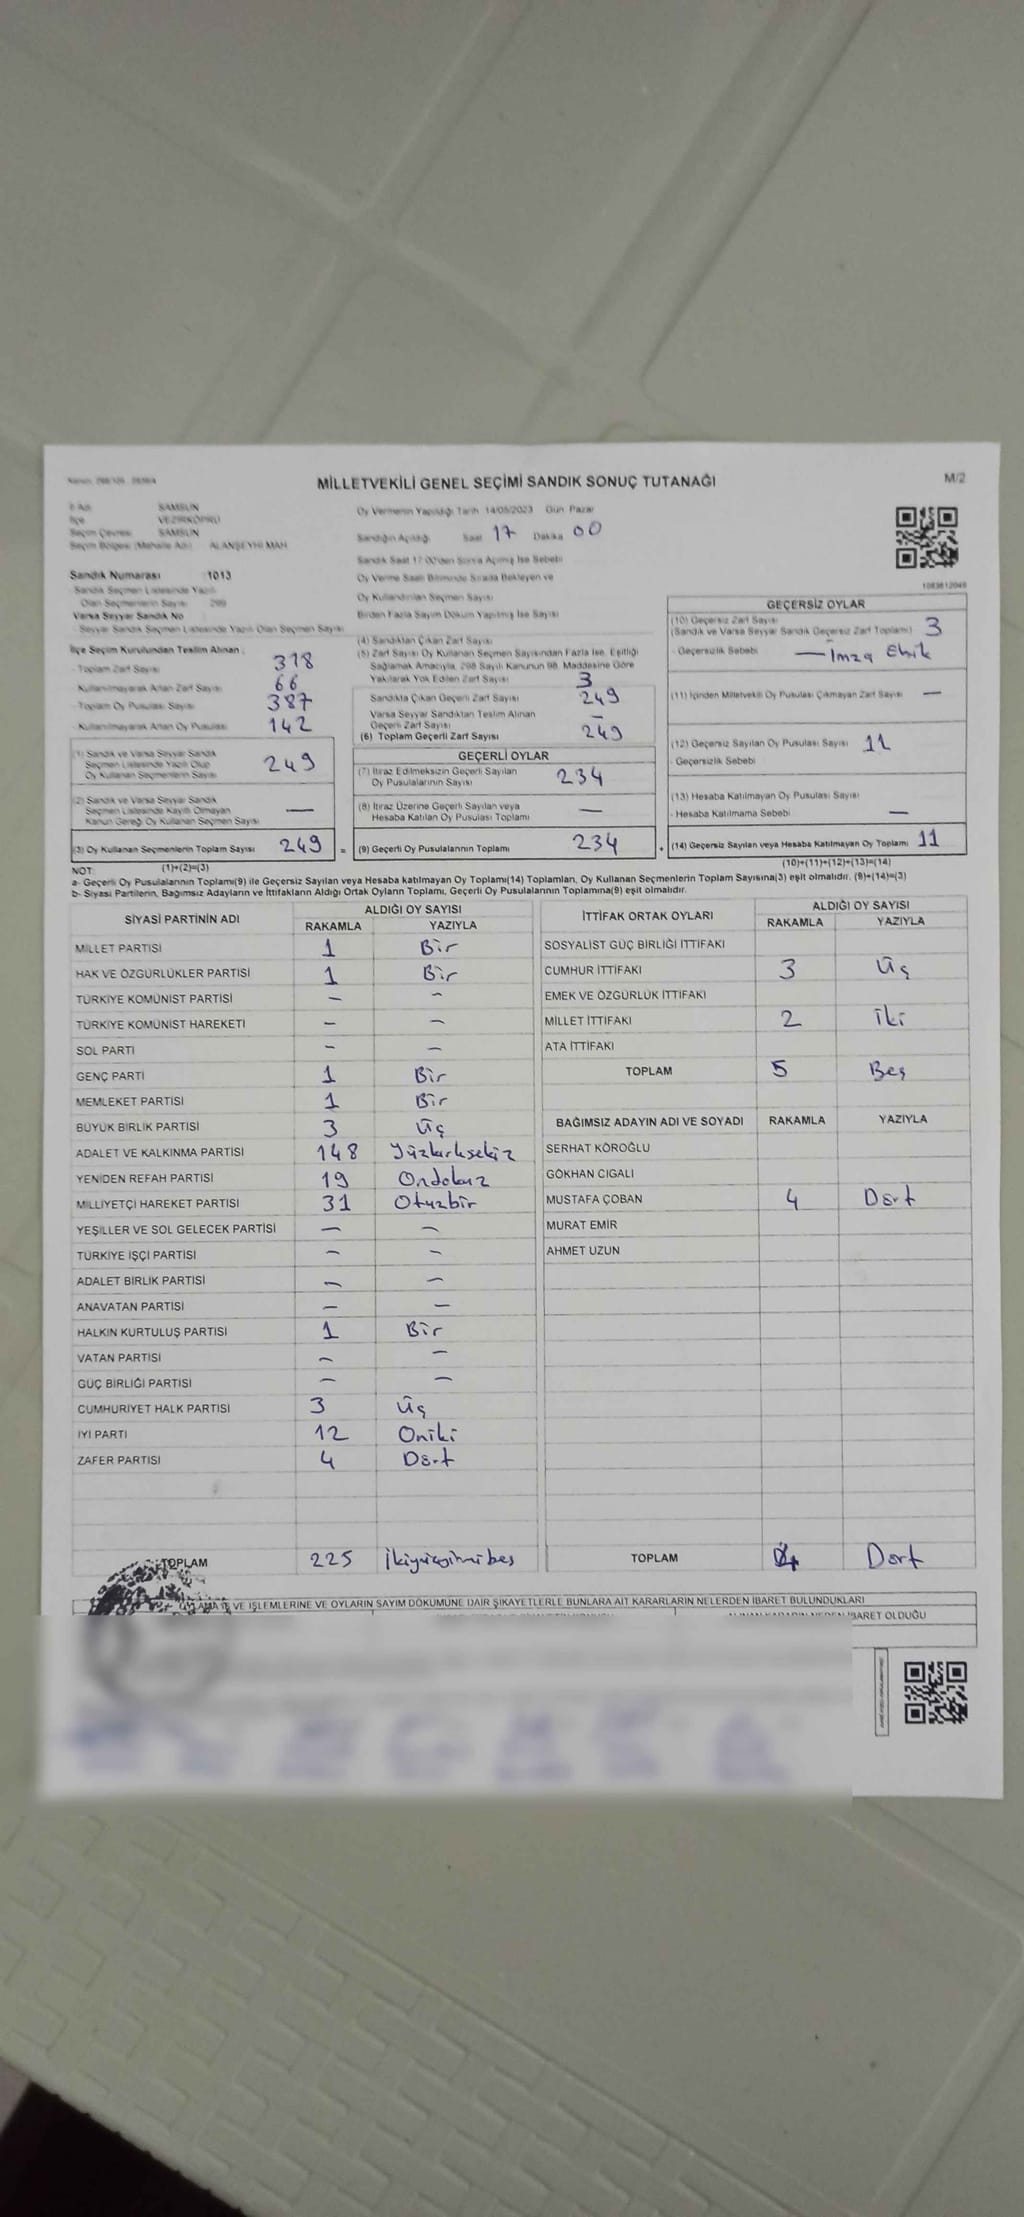 MİLLETVEKİLİ GENEL SEÇİMİ SANDIK SONUÇ TUTANAĞI
M/2
İl Adı SAMSUN
İlçe VEZİRKÖPRÜ
Seçim Çevresi SAMSUN
Seçim Bölgesi (Mahalle Adı) ALANŞEYHİ MAH
Oy Vermenin Yapıldığı Tarih 14/05/2023 Gün Pazar
Sandığın Açıldığı Saat 17 Dakika 00
Sandık Saat 17.00'den Sonra Açılmış İse Sebebi
Oy Verme Saati Bitiminde Sırada Bekleyen ve
Oy Kullandırılan Seçmen Sayısı
Birden Fazla Sayım Döküm Yapılmış İse Sayısı
Sandık Numarası :1013
- Sandık Seçmen Listesinde Yazılı
Olan Seçmenlerin Sayısı 299
Varsa Seyyar Sandık No
- Seyyar Sandık Seçmen Listesinde Yazılı Olan Seçmen Sayısı
İlçe Seçim Kurulundan Teslim Alınan ;
- Toplam Zarf Sayısı 318
- Kullanılmayarak Artan Zarf Sayısı 66
- Toplam Oy Pusulası Sayısı 387
- Kullanılmayarak Artan Oy Pusulası 142
(1) Sandık ve Varsa Seyyar Sandık
Seçmen Listesinde Yazılı Olup
Oy Kullanan Seçmenlerin Sayısı 249
(2) Sandık ve Varsa Seyyar Sandık
Seçmen Listesinde Kayıtlı Olmayan
Kanun Gereği Oy Kullanan Seçmen Sayısı —
(3) Oy Kullanan Seçmenlerin Toplam Sayısı 249 =
(1)+(2)=(3)
(4) Sandıktan Çıkan Zarf Sayısı
(5) Zarf Sayısı Oy Kullanan Seçmen Sayısından Fazla İse, Eşitliği
Sağlamak Amacıyla, 298 Sayılı Kanunun 98. Maddesine Göre
Yakılarak Yok Edilen Zarf Sayısı 3
Sandıkta Çıkan Geçerli Zarf Sayısı 249
Varsa Seyyar Sandıktan Teslim Alınan
Geçerli Zarf Sayısı —
(6) Toplam Geçerli Zarf Sayısı 249
GEÇERLİ OYLAR
(7) İtiraz Edilmeksizin Geçerli Sayılan
Oy Pusulalarının Sayısı 234
(8) İtiraz Üzerine Geçerli Sayılan veya
Hesaba Katılan Oy Pusulası Toplamı —
(9) Geçerli Oy Pusulalarının Toplamı 234 +
GEÇERSİZ OYLAR
(10) Geçersiz Zarf Sayısı
(Sandık ve Varsa Seyyar Sandık Geçersiz Zarf Toplamı) 3
- Geçersizlik Sebebi — İmza Eksik
(11) İçinden Milletvekili Oy Pusulası Çıkmayan Zarf Sayısı —
(12) Geçersiz Sayılan Oy Pusulası Sayısı 11
- Geçersizlik Sebebi
(13) Hesaba Katılmayan Oy Pusulası Sayısı
- Hesaba Katılmama Sebebi —
(14) Geçersiz Sayılan veya Hesaba Katılmayan Oy Toplamı 11
(10)+(11)+(12)+(13)=(14)
NOT:
a- Geçerli Oy Pusulalarının Toplamı(9) ile Geçersiz Sayılan veya Hesaba katılmayan Oy Toplamı(14) Toplamları, Oy Kullanan Seçmenlerin Toplam Sayısına(3) eşit olmalıdır. (9)+(14)=(3)
b- Siyasi Partilerin, Bağımsız Adayların ve İttifakların Aldığı Ortak Oyların Toplamı, Geçerli Oy Pusulalarının Toplamına(9) eşit olmalıdır.
SİYASİ PARTİNİN ADI ALDIĞI OY SAYISI
RAKAMLA YAZIYLA
MİLLET PARTİSİ 1 Bir
HAK VE ÖZGÜRLÜKLER PARTİSİ 1 Bir
TÜRKİYE KOMÜNİST PARTİSİ — —
TÜRKİYE KOMÜNİST HAREKETİ — —
SOL PARTİ — —
GENÇ PARTİ 1 Bir
MEMLEKET PARTİSİ 1 Bir
BÜYÜK BİRLİK PARTİSİ 3 Üç
ADALET VE KALKINMA PARTİSİ 148 Yüzkırksekiz
YENİDEN REFAH PARTİSİ 19 Ondokuz
MİLLİYETÇİ HAREKET PARTİSİ 31 Otuzbir
YEŞİLLER VE SOL GELECEK PARTİSİ — —
TÜRKİYE İŞÇİ PARTİSİ — —
ADALET BİRLİK PARTİSİ — —
ANAVATAN PARTİSİ — —
HALKIN KURTULUŞ PARTİSİ 1 Bir
VATAN PARTİSİ — —
GÜÇ BİRLİĞİ PARTİSİ — —
CUMHURİYET HALK PARTİSİ 3 Üç
İYİ PARTİ 12 Oniki
ZAFER PARTİSİ 4 Dört
TOPLAM 225 İkiyüzyirmibeş
İTTİFAK ORTAK OYLARI ALDIĞI OY SAYISI
RAKAMLA YAZIYLA
SOSYALİST GÜÇ BİRLİĞİ İTTİFAKI
CUMHUR İTTİFAKI 3 Üç
EMEK VE ÖZGÜRLÜK İTTİFAKI
MİLLET İTTİFAKI 2 İki
ATA İTTİFAKI
TOPLAM 5 Beş
BAĞIMSIZ ADAYIN ADI VE SOYADI RAKAMLA YAZIYLA
SERHAT KÖROĞLU
GÖKHAN CIGALI
MUSTAFA ÇOBAN 4 Dört
MURAT EMİR
AHMET UZUN
TOPLAM 4 Dört
VE İŞLEMLERİNE VE OYLARIN SAYIM DÖKÜMÜNE DAİR ŞİKAYETLERLE BUNLARA AİT KARARLARIN NELERDEN İBARET BULUNDUKLARI
İBARET OLDUĞU